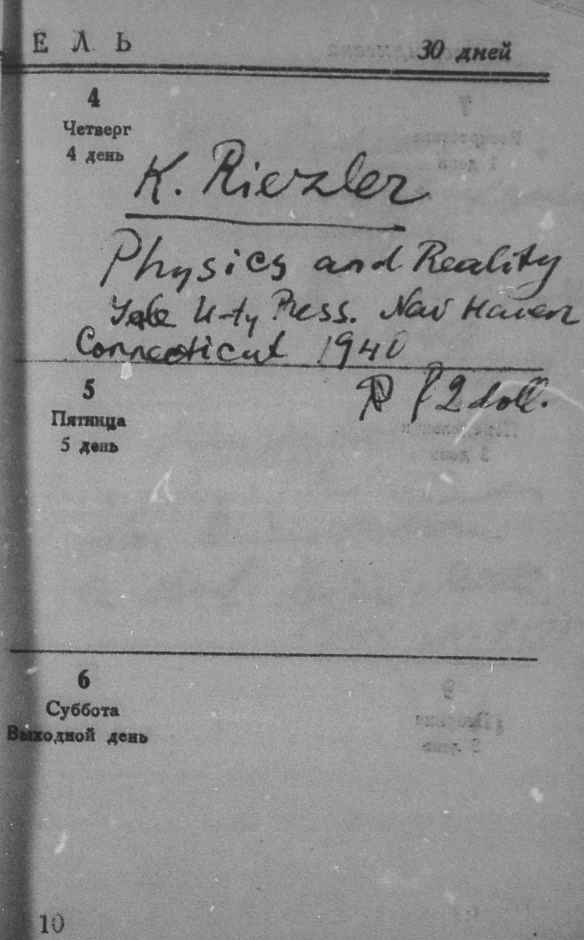 ЕЛЬ 30 дней
4
Четверг
4 день
K. Riezler
Physics and Reality
Yale U-ty Press. New Haven
Connecticut 1940
2 doll.
5
Пятница
5 день
6
Суббота
Выходной день
10